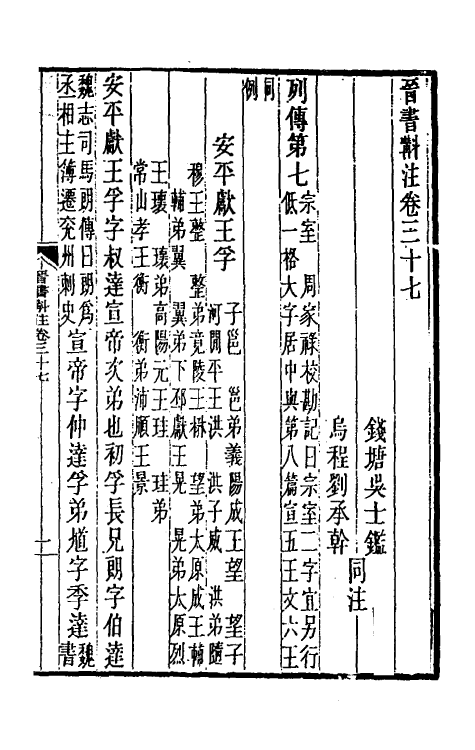 晉書斠注卷三十七
錢塘吳士鑑
烏程劉承幹
同注
列傳第七
宗室　周家祿校勘記曰宗室二字宜另行
低一格大字居中與第八篇宣五王文六王
同
例
安平獻王孚
子邕　邕弟義陽成王望　望子
河間平王洪　洪子威　洪弟隨
穆王整　整弟竟陵王楙　望弟太原成王輔
輔弟翼　翼弟下邳獻王晃　晃弟太原烈
王瓌　瓌弟高陽元王珪　珪弟
常山孝王衡　衡弟沛順王景
安平獻王孚字叔達宣帝次弟也初孚長兄朗字伯達
魏志司馬朗傳曰朗爲
丞相主簿遷兗州刺史
宣帝字仲達孚弟馗字季達
魏
書
晉書斠注卷三十七
一